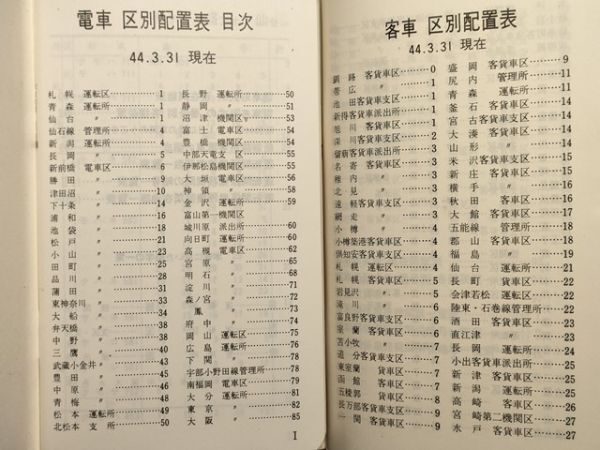 電車 区別配置表 目次
44.3.31 現在
札幌 運転区 1
青森 運転所 1
仙台 〃 1
仙石線 管理所 4
新潟 運転所 4
長岡 〃 5
新前橋 電車区 6
勝田 〃 9
津田沼 〃 10
下十条 〃 14
浦和 〃 16
池袋 〃 18
松戸 〃 21
小山 〃 23
田町 〃 25
品川 〃 28
蒲田 〃 31
東神奈川 〃 33
大船 〃 34
弁天橋 〃 38
中野 〃 38
三鷹 〃 40
武蔵小金井 〃 43
豊田 〃 45
中原 〃 46
青梅 〃 48
松本 運転所 49
北松本 支所 50
長野 運転所 50
静岡 〃 51
沼津 機関区 53
富士 電車区 54
豊橋 機関区 54
中部天竜 支区 55
伊那松島機関区 55
大垣 電車区 56
神領 〃 58
金沢 運転所 59
富山第一機関区
城川原 派出所 60
向日町 運転所 60
高槻 電車区 62
宮原 〃 65
明石 〃 68
淀川 〃 71
森ノ宮 〃 72
鳳 〃 73
府中 〃 74
岡山 運転区 75
広島 運転所 76
下関 〃 78
宇部小野田線管理所 78
南福岡 電車区 79
大分 運転所 81
東京 〃 82
大阪 〃 85
1
客車 区別配置表
44.3.31 現在
釧路 客貨車区 0
帯広 〃 1
池田 客貨車支区 1
新得客貨車派出所 1
旭川 客貨車区 1
深川 客貨車支区 2
留萌客貨車派出所 3
名寄 客貨車区 3
稚内 〃 3
北見 〃 3
遠軽 客貨車支区 3
網走 〃 3
小樽 〃 4
小樽築港客貨車区 4
倶知安客貨車支区 4
札幌 運転区 4
札幌 客貨車区 5
岩見沢 〃 5
滝川 〃 6
富良野客貨車支区 6
室蘭 客貨車区 6
苫小牧 〃 7
追分 客貨車支区 7
東室蘭 〃 7
函館 客車区 7
五稜郭 客貨車区 8
長万部客貨車支区 9
一関 客貨車区 9
盛岡 客貨車区 9
尻内 管理所 11
青森 運転所 11
釜石 客貨車区 14
宮古 客貨車支区 14
大湊 客貨車区 14
山形 〃 14
米沢 客貨車支区 15
新庄 客貨車区 16
横手 〃 16
秋田 客車区 16
大館 客貨車区 17
五能線 管理所 18
郡山 客貨車区 18
福島 〃 19
仙台 運転所 21
長町 客貨車区 22
会津若松 運転区 22
陸東・石巻線管理所 22
酒田 客貨車区 23
直江津 〃 23
長岡 運転所 24
小出客貨車派出所 25
新津 客貨車区 25
新潟 運転所 25
高崎 客車区 26
宮崎第二機関区 27
水戸 客貨車区 27